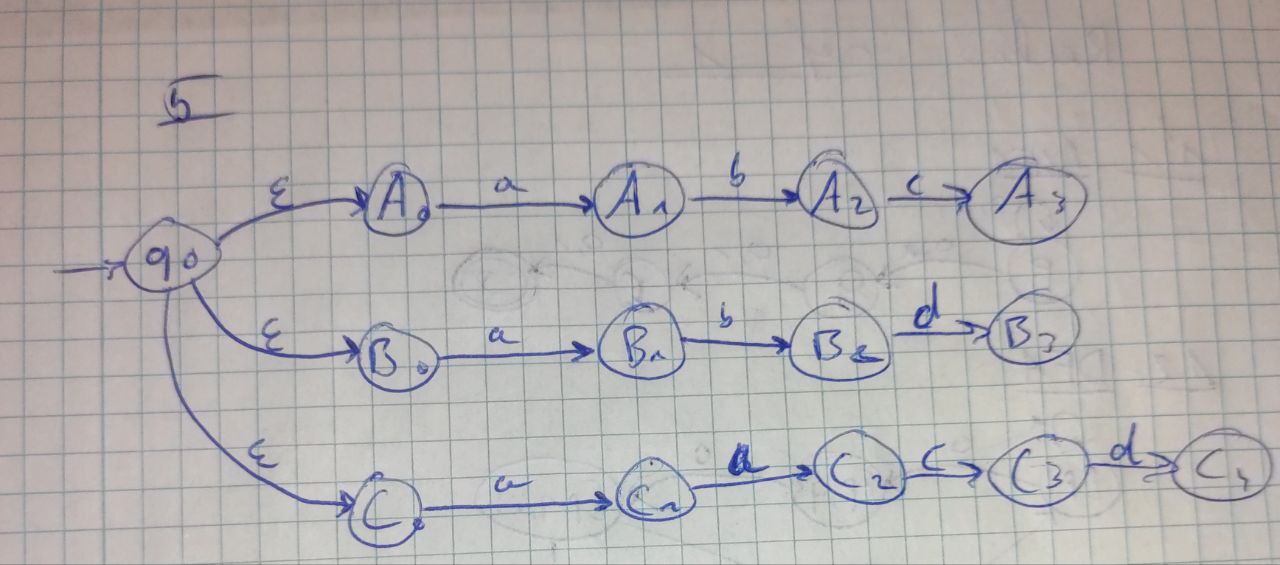 5
ε A₀ a A₁ b A₂ c A₃
q₀
ε B₀ a B₁ b B₂ d B₃
ε C₀ a C₁ a C₂ c C₃ d C₄